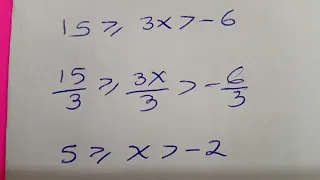 15 ⩾ 3x > -6
15/3 ⩾ 3x/3 > -6/3
5 ⩾ x > -2